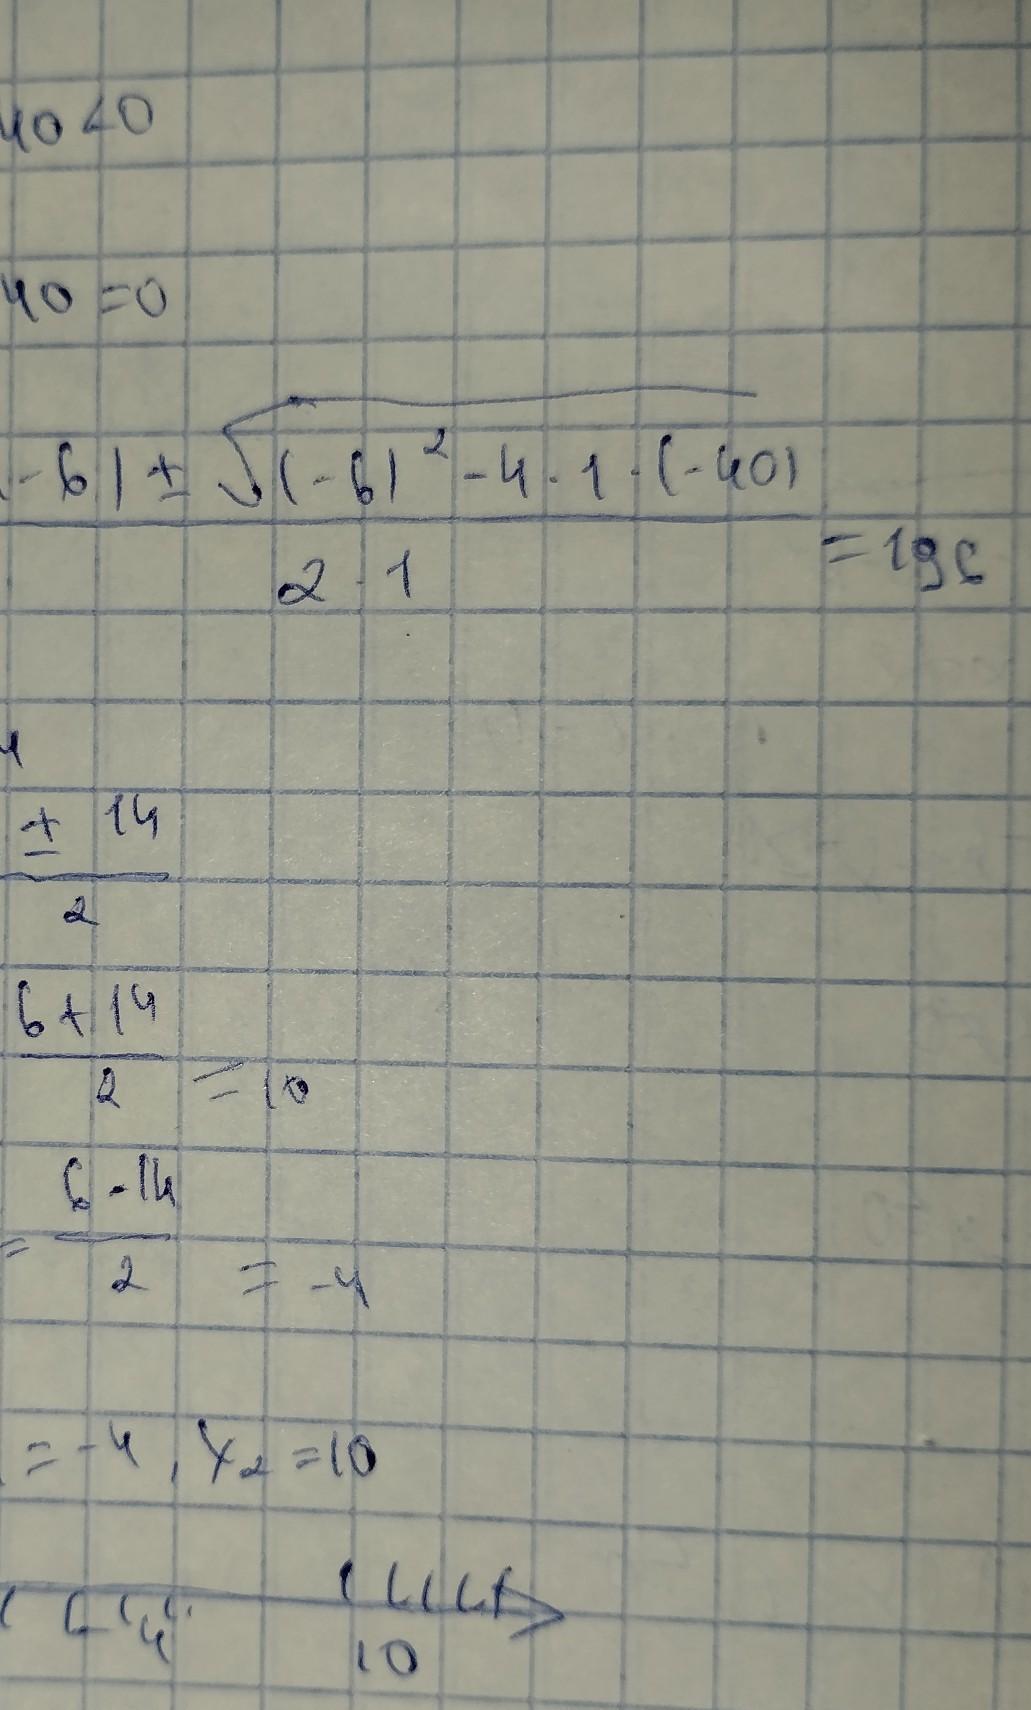 40<0
40=0
-6)±√(-6)²-4·1·(-40)
2·1
=196
4
± 14
2
6+14
2
=10
6-14
=
2
= -4
=-4, x₂=10
4
10